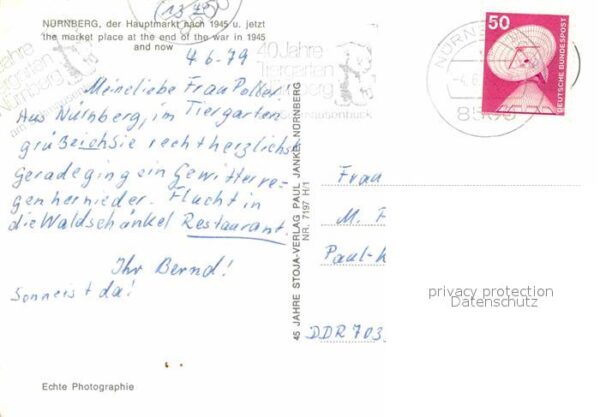 (13 20)
NÜRNBERG, der Hauptmarkt nach 1945 u. jetzt
the market place at the end of the war in 1945
and now
4.6.79
40 Jahre
Tiergarten
Nürnberg
am Schmausenbuck
40 Jahre
Tiergarten
Meine liebe Frau Poller!
Aus Nürnberg, im Tiergarten
grüße ich Sie recht herzlichst
gerade ging ein Gewitterre-
gen hernieder. Flucht in
die Waldschänkel Restaurant.
Ihr Bernd!
Sonne ist da!
Echte Photographie
45 JAHRE STOJA-VERLAG PAUL JANKE, NÜRNBERG
NR. 7197 H/1
NÜRN
8500
50
DEUTSCHE BUNDESPOST
Frau
M.
Paul-
DDR 703
privacy protection
Datenschutz